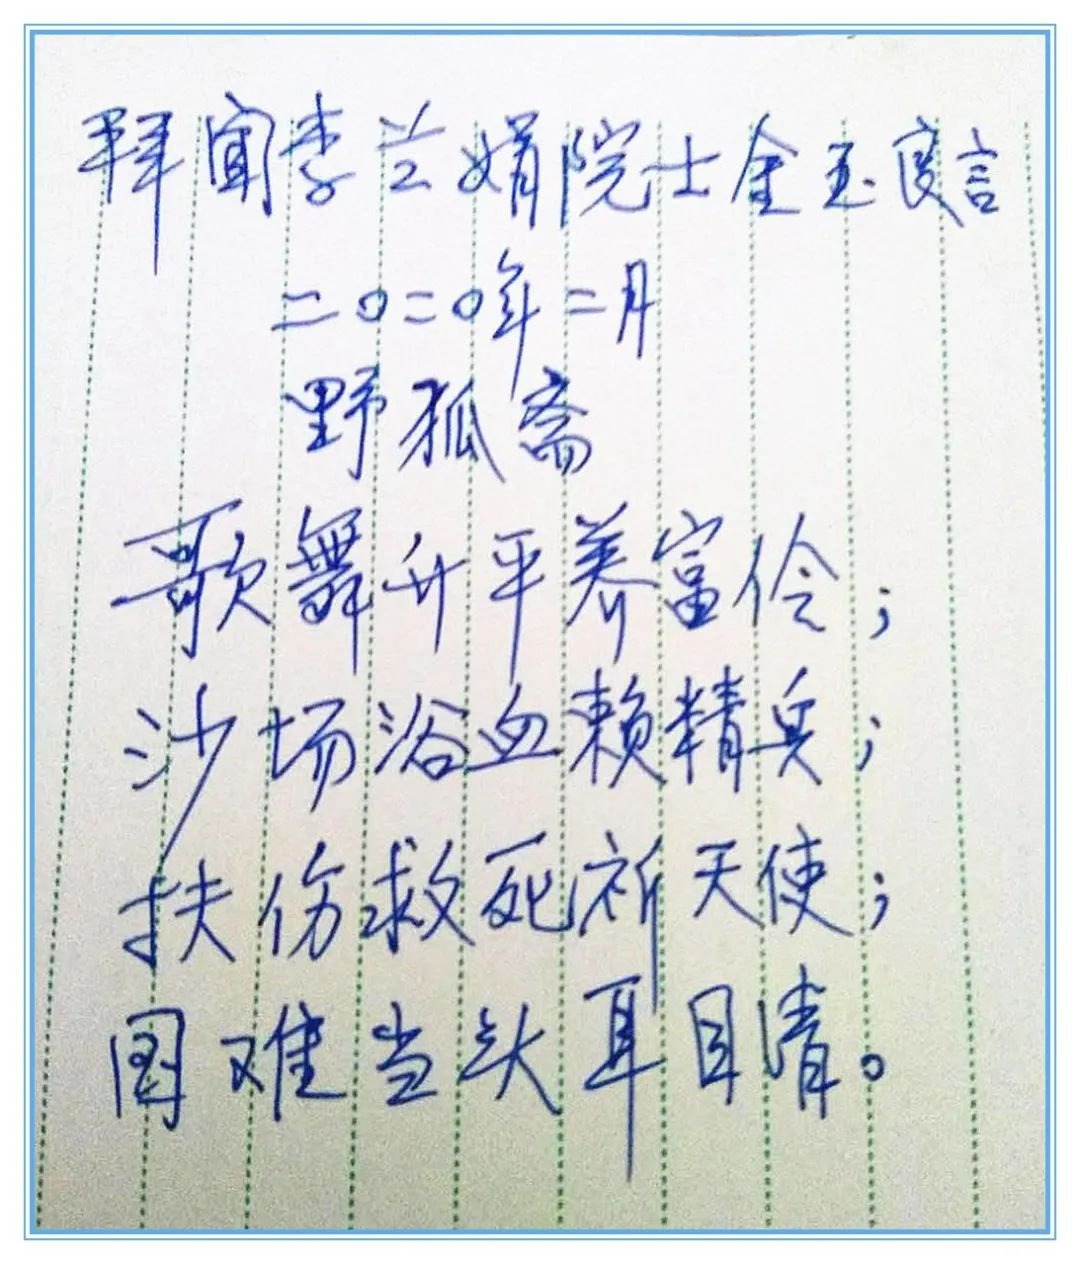 拜闻李兰娟院士金玉良言
二〇二〇年二月
野狐斋
歌舞升平养富伶；
沙场浴血赖精兵；
扶伤救死祈天使；
国难当头耳目清。